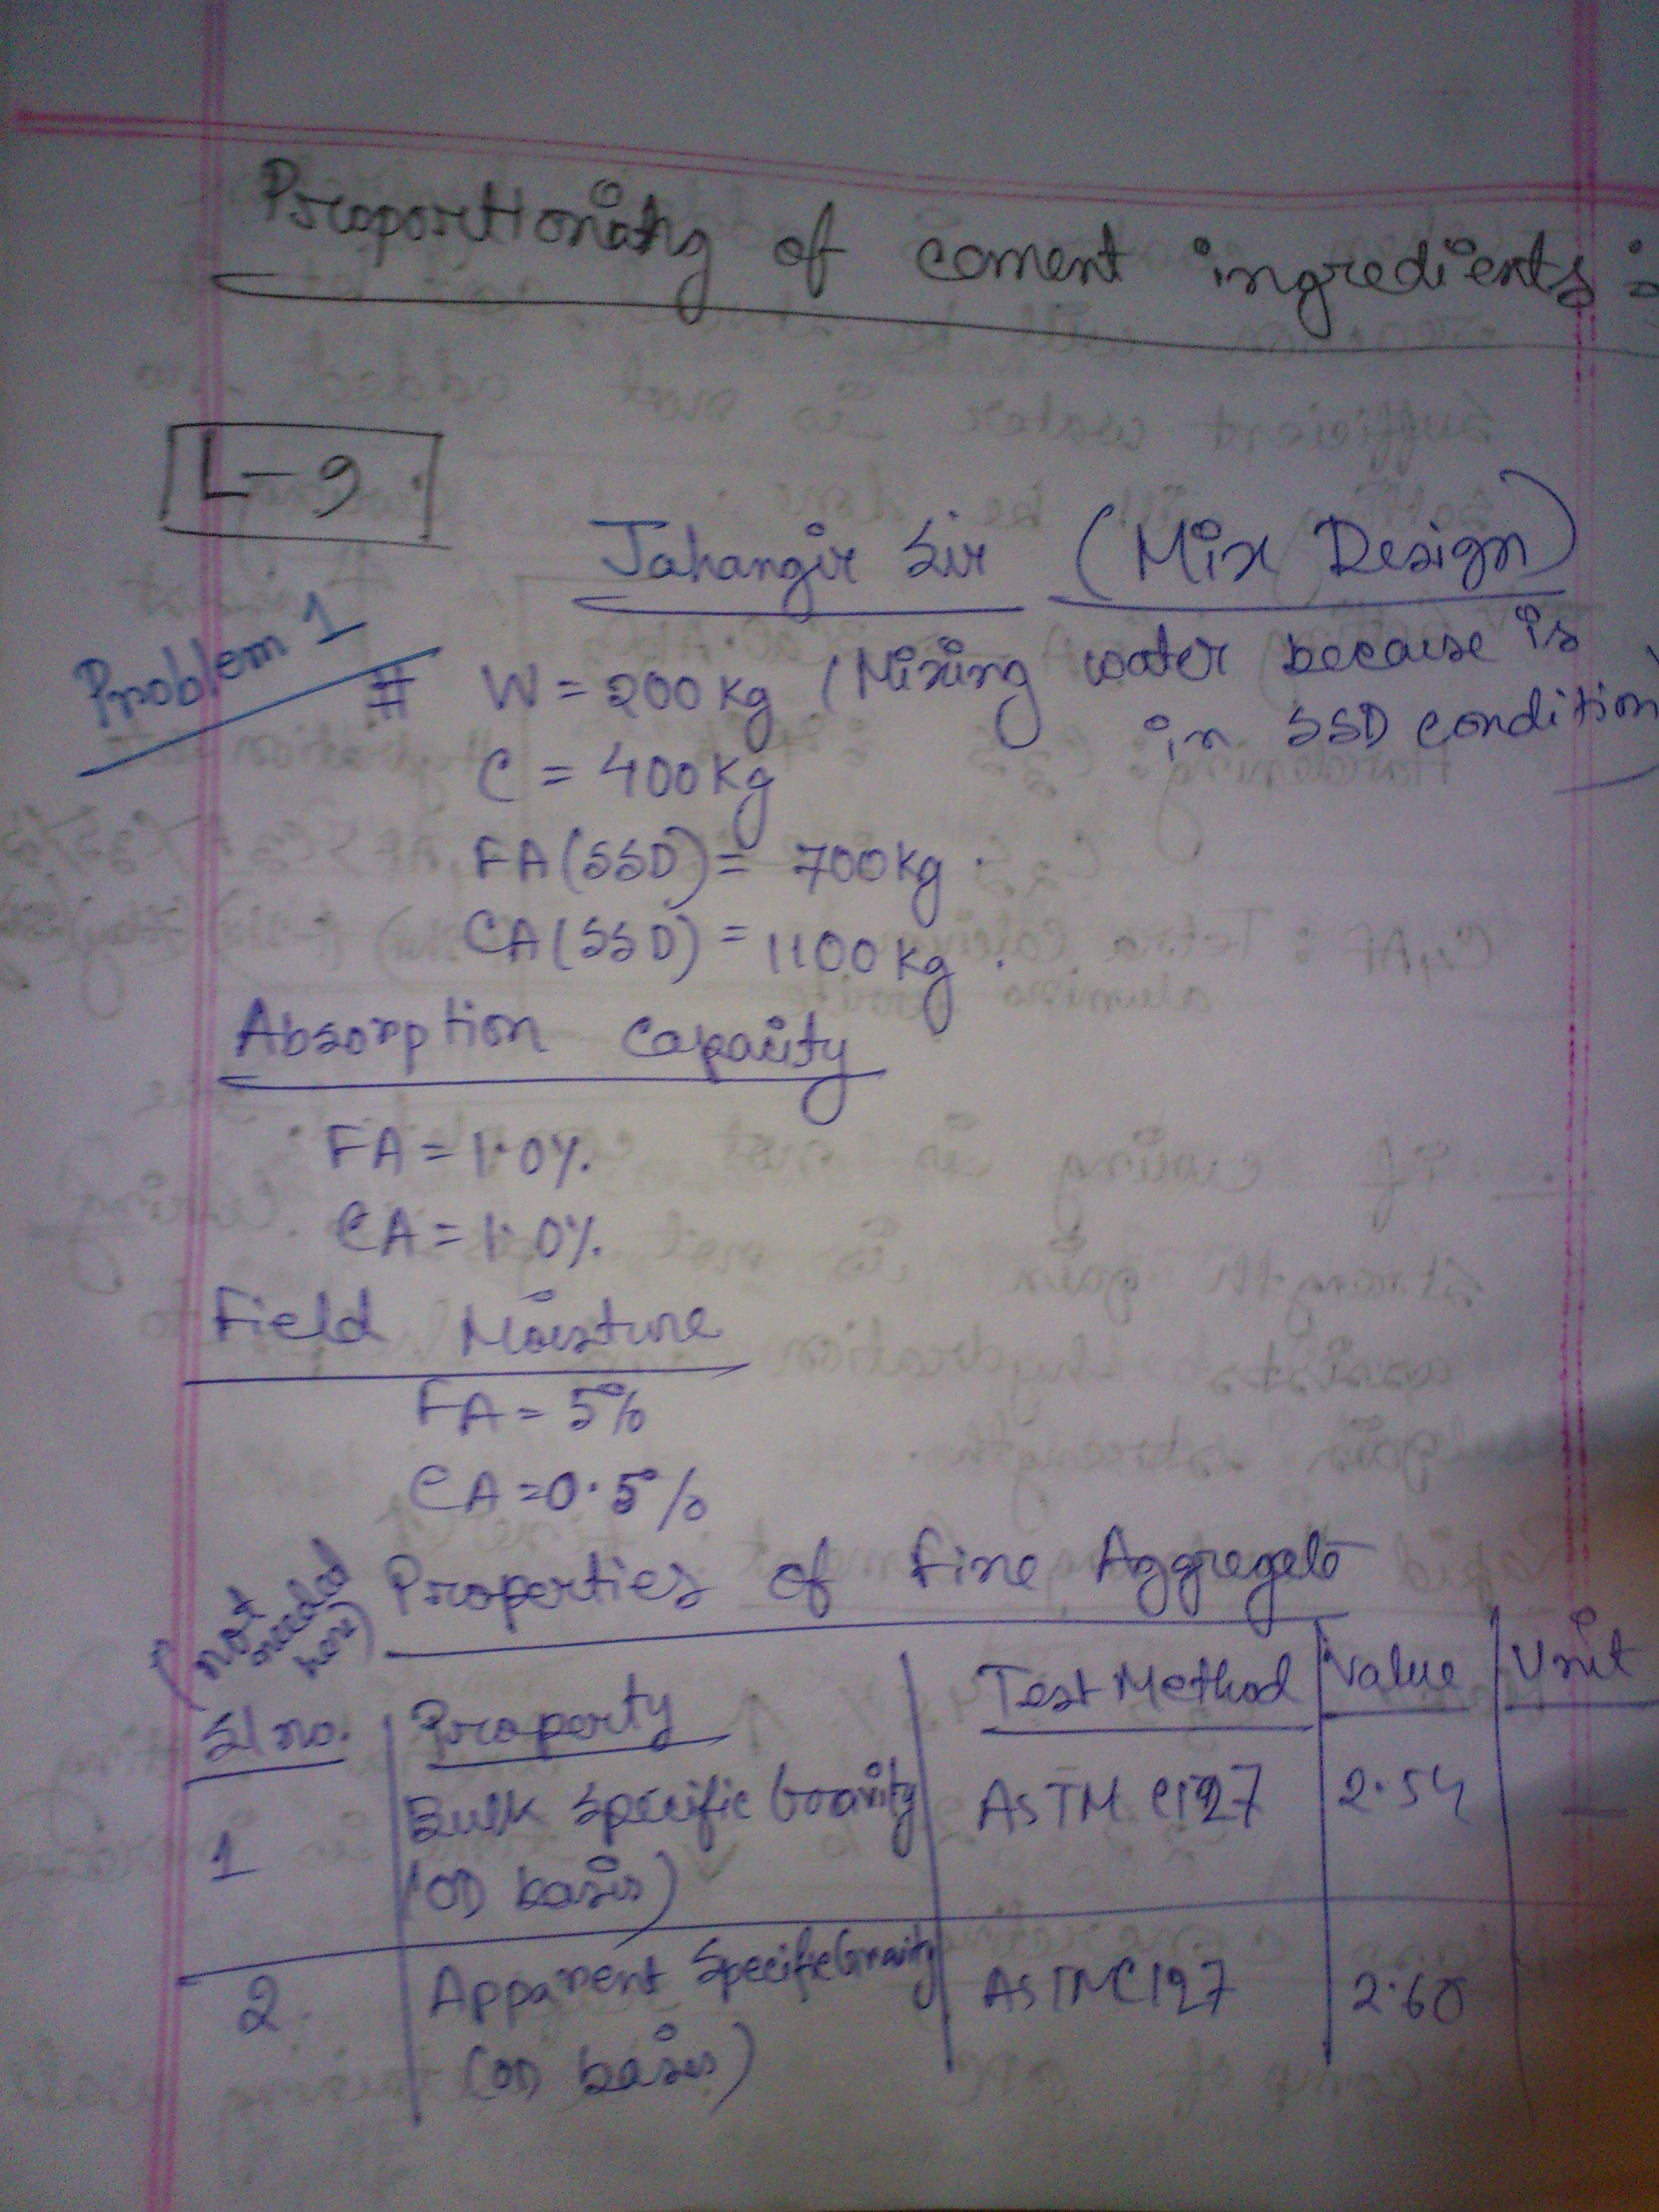 Proportionating of cement ingredients :
L-9
Jahangir Sir (Mix Design)
Problem 1
# W = 200 kg (Mixing water because is
in SSD condition)
C = 400 kg
FA (SSD) = 700 kg.
CA (SSD) = 1100 kg.
Absorption Capacity
FA = 1.0%.
CA = 1.0%.
Field Moisture
FA = 5%
CA = 0.5%
(not needed here) Properties of Fine Aggregate
Sl no. Property Test Method Value Unit
1 Bulk Specific Gravity (OD basis) ASTM C127 2.54 —
2. Apparent Specific Gravity (OD basis) ASTM C127 2.60